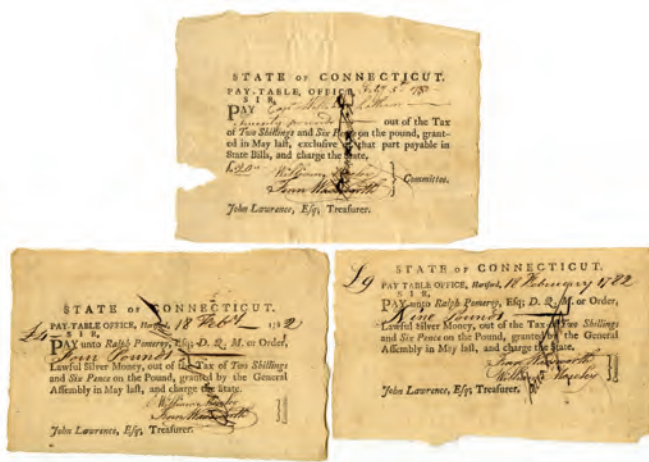 STATE OF CONNECTICUT.
PAY-TABLE, OFFICE,
SIR,
PAY Capt William Latham
twenty pounds out of the Tax
of Two Shillings and Six Pence on the pound, grant-
ed in May last, exclusive of that part payable in
State Bills, and charge the State,
£20
William Moseley
Fenn Wadsworth } Committee.
John Lawrence, Esq; Treasurer.
STATE OF CONNECTICUT.
£4 PAY-TABLE OFFICE, Hartford, 18 Feby 1782
SIR,
PAY unto Ralph Pomeroy, Esq; D. Q. M. or Order,
Four Pounds
Lawful Silver Money, out of the Tax of Two Shillings
and Six Pence on the Pound, granted by the General
Assembly in May last, and charge the State.
William Moseley
Fenn Wadsworth
John Lawrence, Esq; Treasurer.
£9 STATE OF CONNECTICUT.
PAY TABLE OFFICE, Hartford, 18 February 1782
SIR,
PAY unto Ralph Pomeroy, Esq; D. Q. M. or Order,
Nine Pounds
Lawful Silver Money, out of the Tax of Two Shillings
and Six Pence on the Pound, granted by the General
Assembly in May last, and charge the State.
Fenn Wadsworth
William Moseley
John Lawrence, Esq; Treasurer.